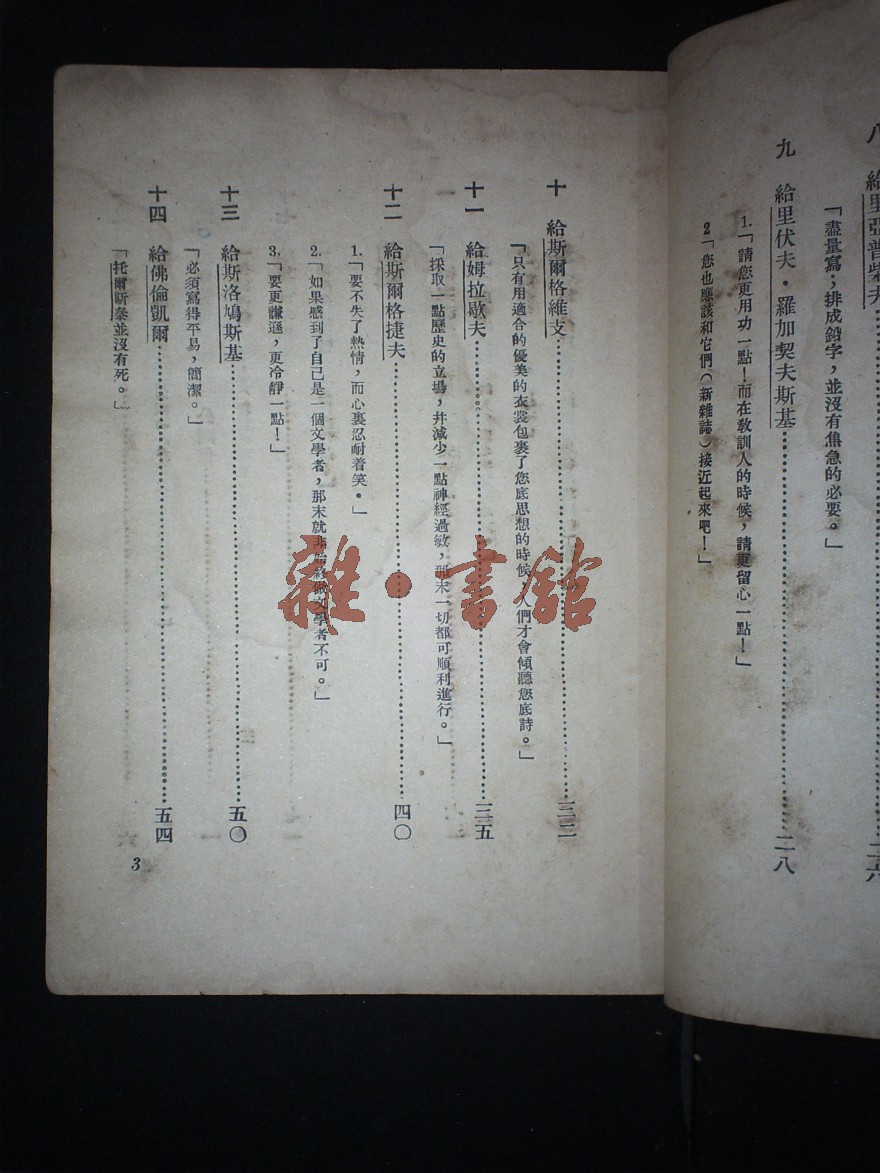 八 給里亞普柴夫
「盡量寫；排成鉛字，並沒有焦急的必要。」
九 給里伏夫・羅加契夫斯基……二八
1.「請您更用功一點！而在教訓人的時候，請更留心一點！」
2「您也應該和它們（新雜誌）接近起來吧！」
十 給斯爾格維支……三二
「只有用適合的優美的衣裳包裹了您底思想的時候，人們才會傾聽您底詩。」
十一 給姆拉歇夫……三五
「採取一點歷史的立場，并減少一點神經過敏，那末一切都可順利進行。」
十二 給斯爾格捷夫……四〇
1.「要不失了熱情，而心裏忍耐着笑。」
2.「如果感到了自己是一個文學者，那末就非始終做文學者不可。」
3.「要更謙遜，更冷靜一點！」
十三 給斯洛鳩斯基……五〇
「必須寫得平易，簡潔。」
十四 給佛倫凱爾……五四
「托爾斯泰並沒有死。」
3
雜・書館